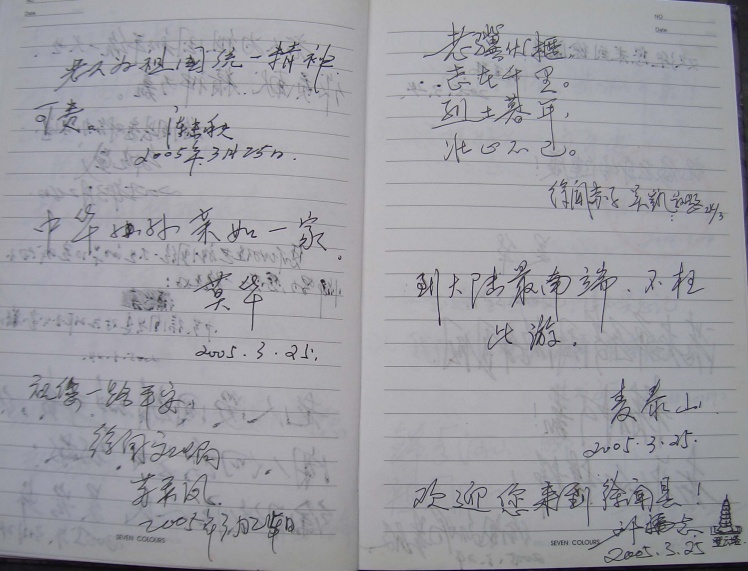 老人为祖国统一精神
可贵。
2005年3月25日.
中华儿孙亲如一家.
莫华
2005.3.25.
祝您一路平安.
徐闻文化局
2005年3月25日
SEVEN COLOURS
NO.
Date
老骥伏枥
志在千里。
烈士暮年,
壮心不已。
到大陆最南端.不枉
此游.
麦泰山
2005.3.25.
欢迎您来到徐闻县!
2005.3.25
SEVEN COLOURS